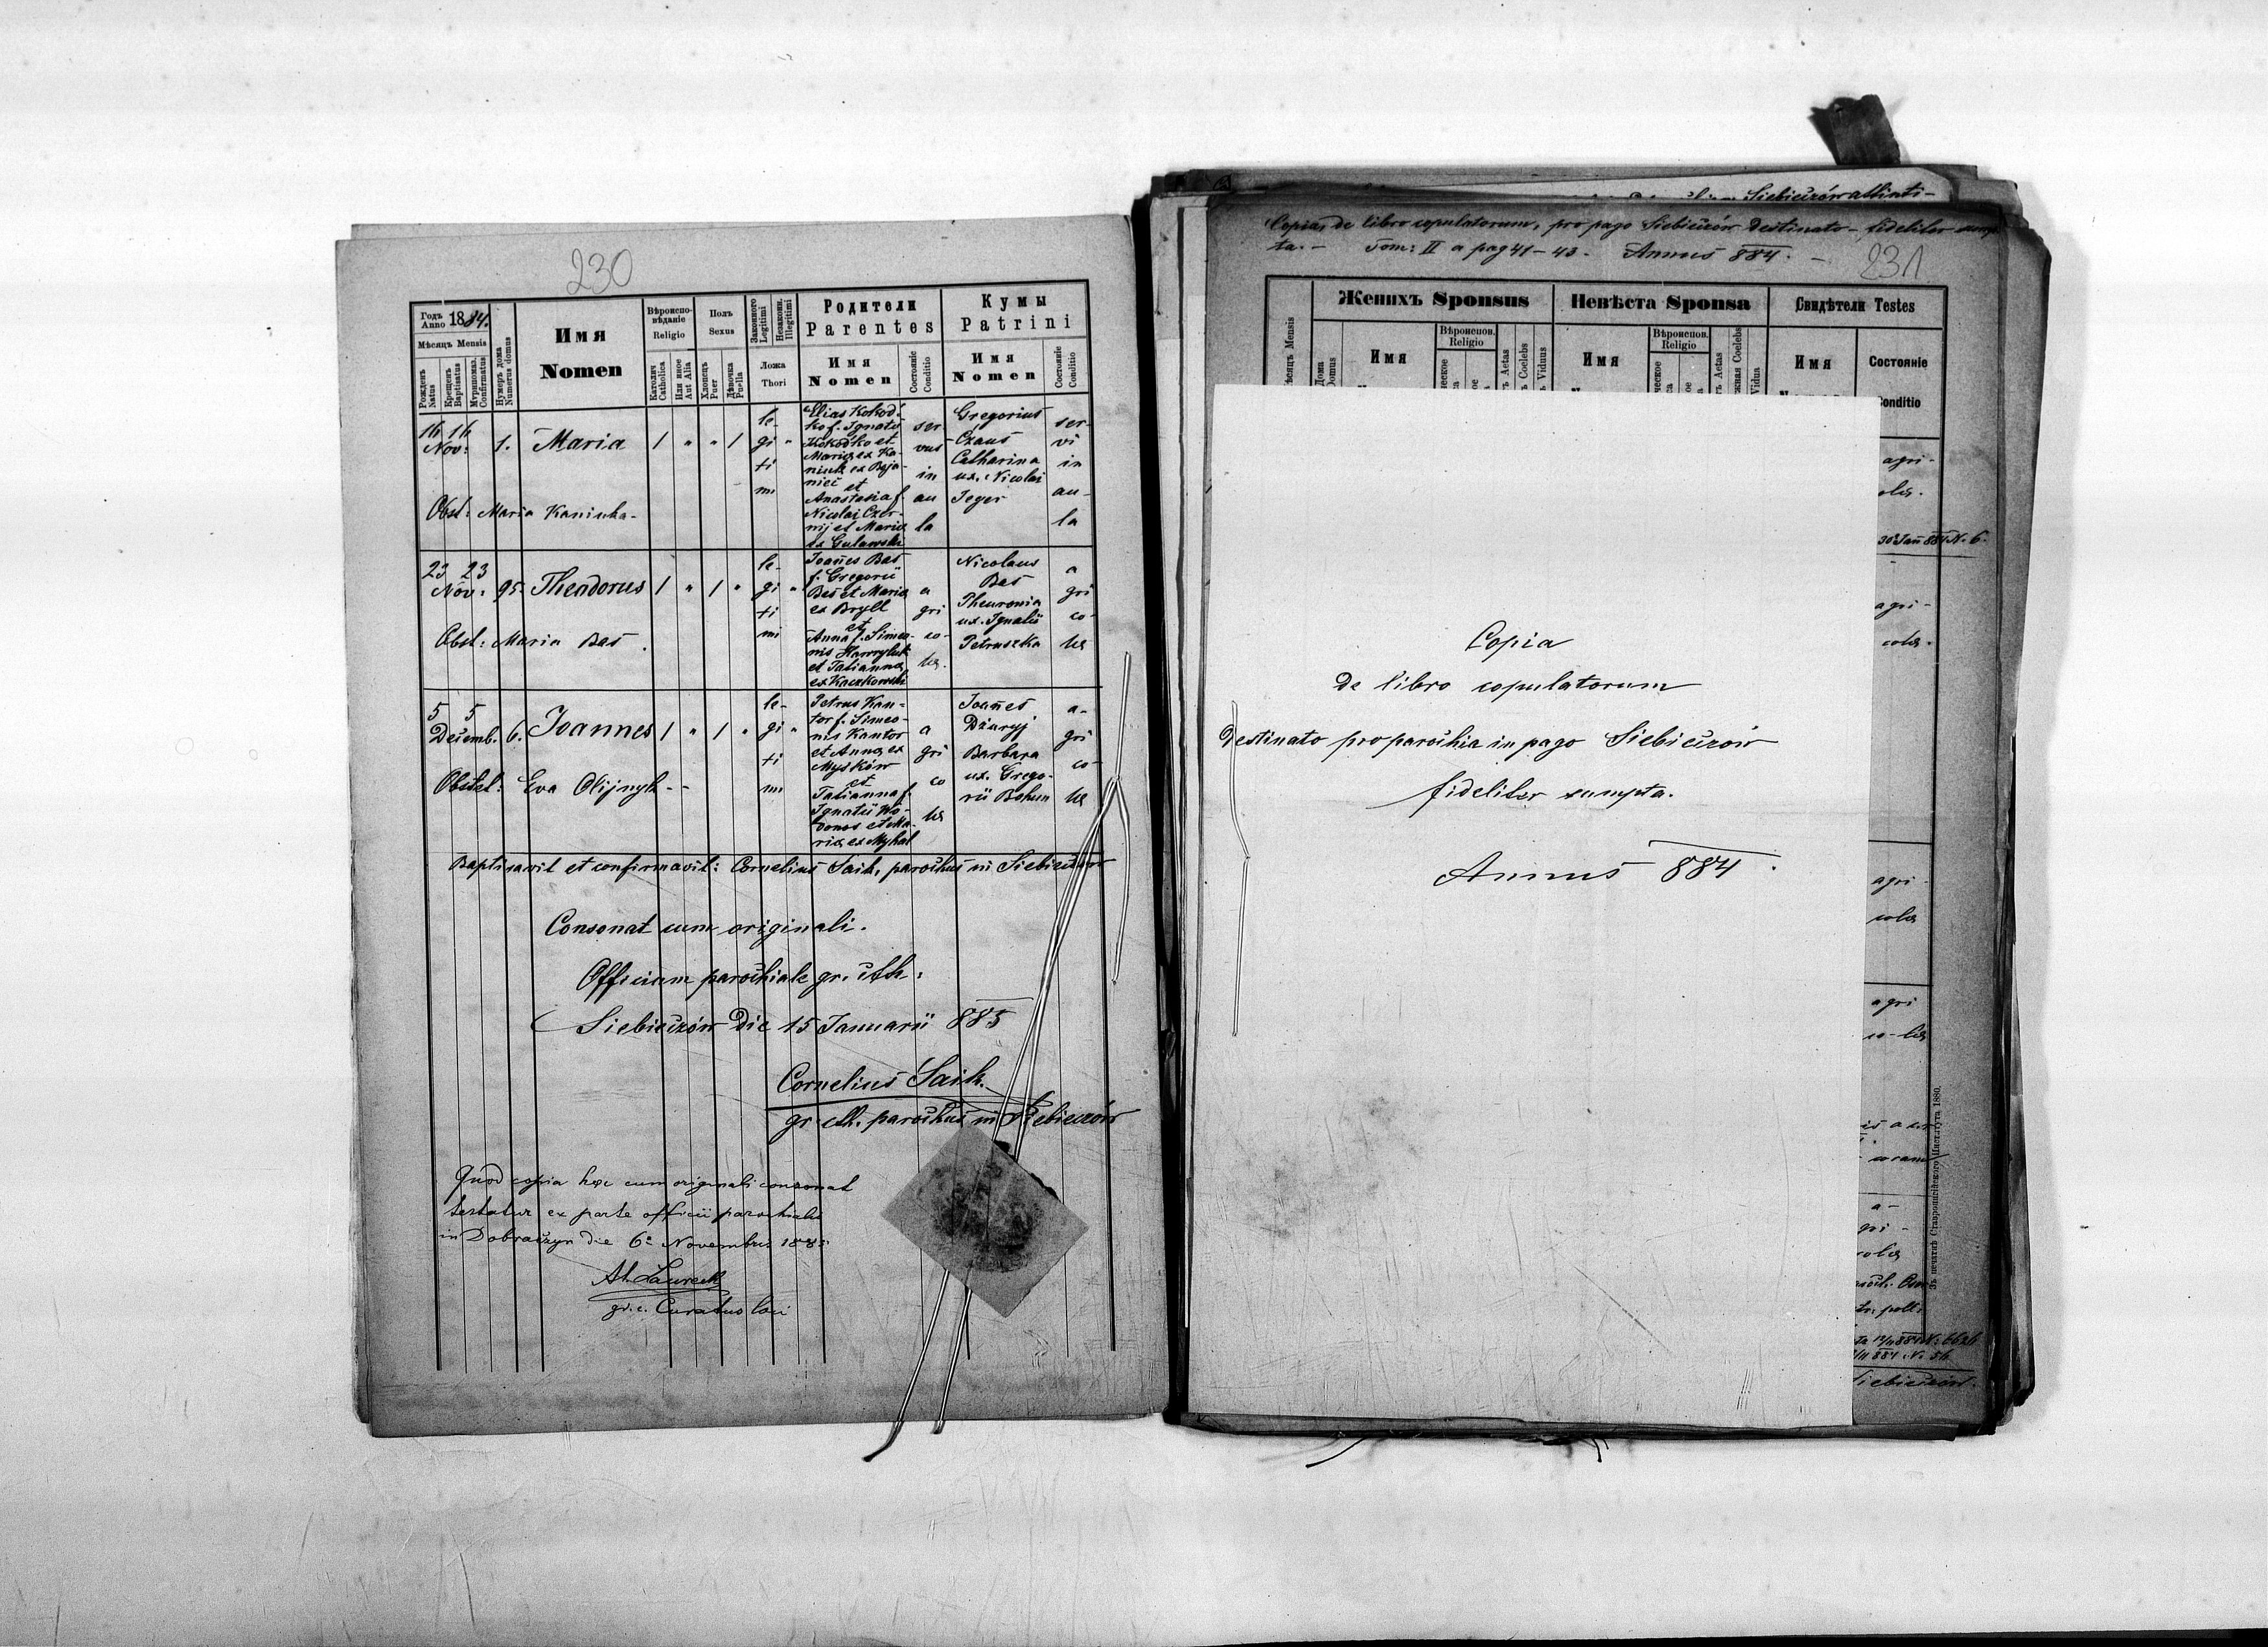 230
Годъ Anno 1884.
Мѣсяцъ Mensis
Рожденъ Natus
Крещенъ Baptisatus
Мѵропомаз. Confirmatus
Нумеръ дома Numerus domus
Имя Nomen
Вѣроисповѣданіе Religio
Католич Catholica
Или иное Aut Alia
Полъ Sexus
Хлопецъ Puer
Дѣвочка Puella
Законного Legitimi
Незаконн. Illegitimi
Ложа Thori
Родители Parentes
Имя Nomen
Состояніе Conditio
Кумы Patrini
Имя Nomen
Состояніе Conditio
16 16
Nov: 1. Maria 1 " " 1
le-
gi "
ti
mi
Elias Kokod-
ko f. Ignatii
Kokodko et
Maria ex Ka-
niuk ex Boja-
niec et
Anastasia f.
Nicolai Czor-
nij et Maria
ex Gulawski
ser
vus
in
au
la
Gregorius
Czaus
Catharina
ux. Nicolai
Jeger
ser-
vi
in
au-
la
Obst: Maria Kaniuka-
23 23
Nov. 95. Theodorus 1 " 1 "
le-
gi "
ti
mi
Joañes Bas
f. Gregorii
Bas et Maria
ex Bryll
et
Anna f. Simeo-
nis Hawryluk
et Tatianna
ex Kaczkowski
a
gri
co-
læ.
Nicolaus
Bas
Pheuronia
ux. Ignatii
Petruszka
a
gri
co-
læ
Obst: Maria Bas.
5 5
Decemb. 6. Joannes 1 " 1 "
le-
gi "
ti
mi
Petrus Kan-
tor f. Simeo-
nis Kantor
et Anna ex
Myskow
et
Tatianna f.
Ignatii Wo-
donos et Ma-
ria ex Myhal
a
gri
co
læ
Joañes
Dżuryj
Barbara
ux. Grego-
rii Bohun
a-
gri
co-
læ
Obstet: Eva Olijnyk - -
Baptisavit et confirmavit: Cornelius Saik, parochus in Siebieczow
Consonat cum originali.
Officium parochiale gr. cth:
Siebieczów die 15 Januarii 885
Cornelius Saik.
gr. cth. parochus in Siebieczów
Quod copia hæc cum originali consonat
testatur ex parte officii parochialis
in Dobraczyn die 6ª Novembris 188
Al. Laurecki
gr. c. Curatus loci
Siebieczów attinti-
Copia, de libro copulatorum, pro pago Siebieczów destinato - fideliter sump
ta. - Tom: II a pag 41 - 43. Annus 884. -
231
Мѣсяцъ Mensis
Дома Domus
Женихъ Sponsus
Имя
Вѣроиспов. Religio
Aetas
Coelebs
Viduus
Невѣста Sponsa
Имя
Вѣроиспов. Religio
Aetas
Coelebs
Vidua
Свидѣтели Testes
Имя
Состояніе
Conditio
agri-
olæ.
30 Jan 884 N. 6.
agri-
colæ.
agri-
colæ
agri
co-læ
coram
a-
gri-
colæ
N. 56
Siebieczów.
Зъ печатнѣ Ставропигійского Института 1880.
Copia
de libro copulatorum
destinato pro parochia in pago Siebieczów
fideliter sumpta.
Annus 884.